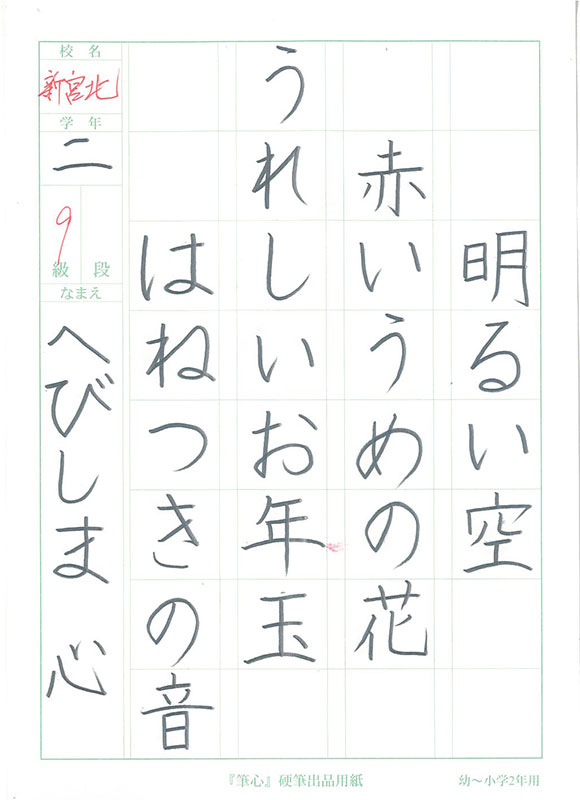 明るい空
赤いうめの花
うれしいお年玉
はねつきの音
校名
新宮北
学年
二
9
級 段
なまえ
へびしま 心
『筆心』硬筆出品用紙
幼～小学2年用